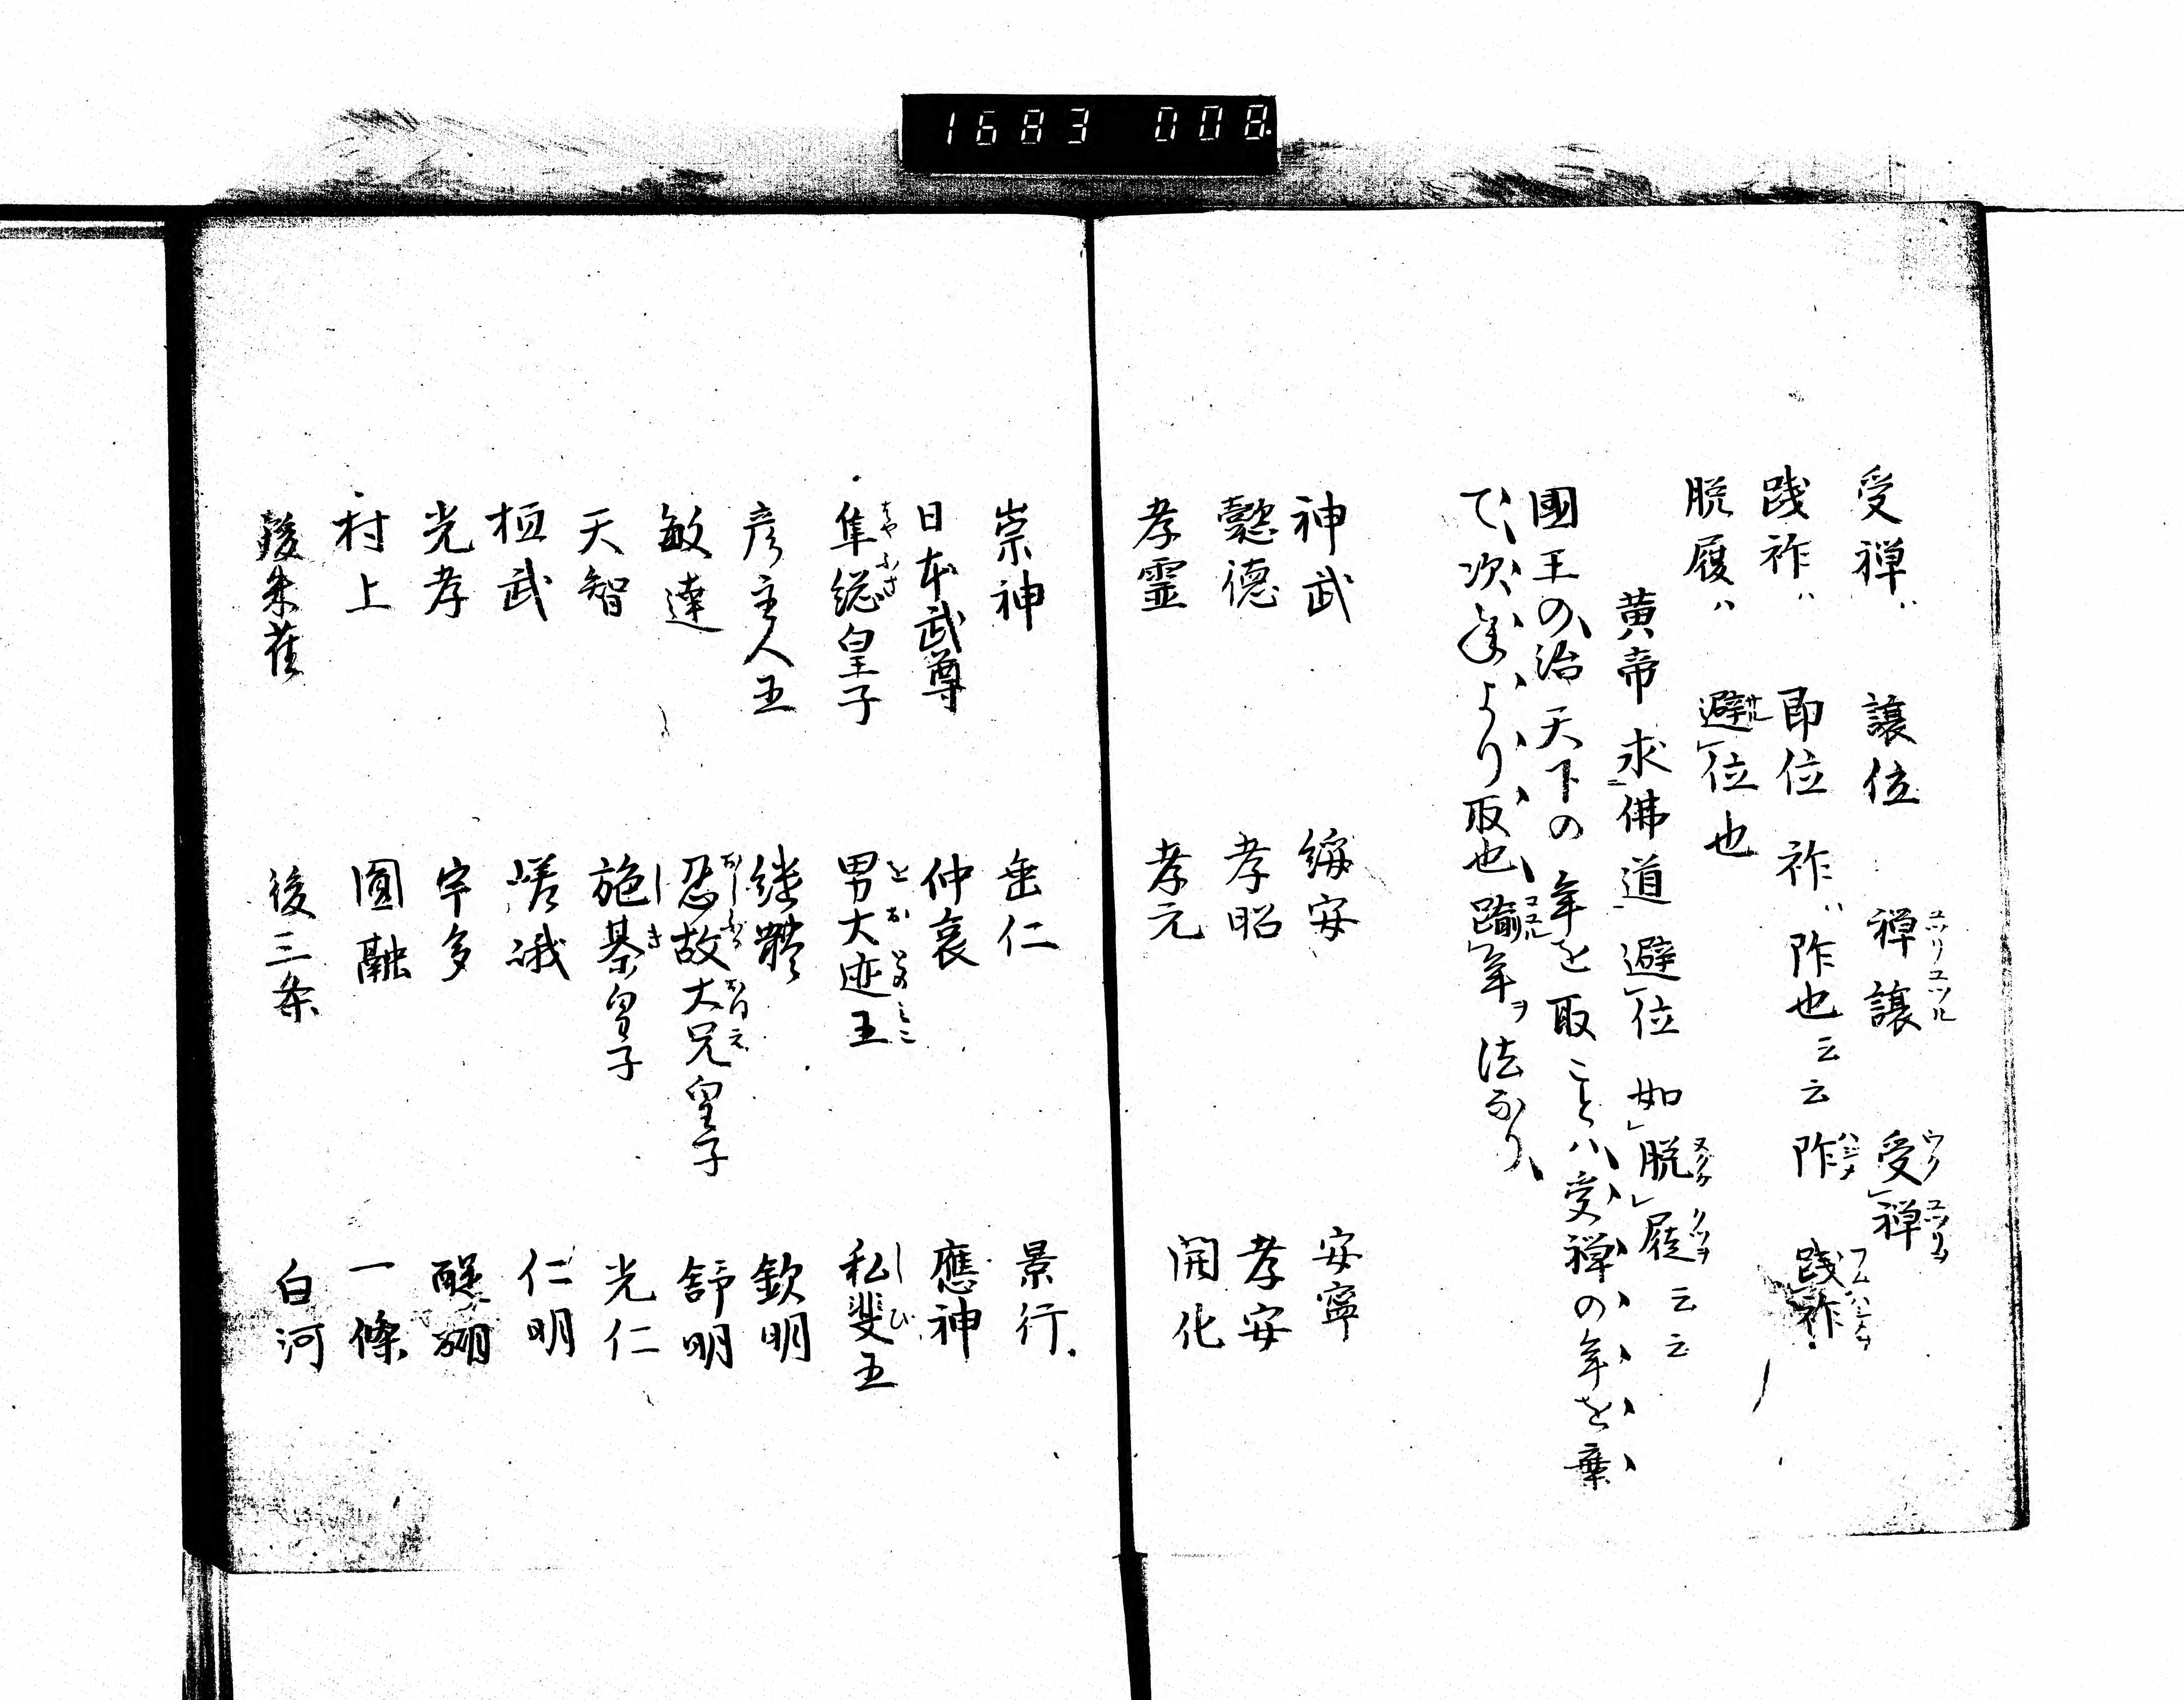 1683 008
受禅ハ 譲位 禅譲 受禅
践祚ハ 即位 祚ハ阼也云云 阼 践祚
脱屣ハ 避位也
黄帝求佛道避位如脱屣云云
國王の治天下の年を取ことハ受禅の年を棄
て次年より取也踰年ヲ法なり
神武 綏安 安寧
懿德 孝昭 孝安
孝霊 孝元 開化
崇神 垂仁 景行
日本武尊 仲哀 應神
隼総皇子 男大迹王 私斐王
彦主人王 継體 欽明
敏達 忍坂大兄皇子 舒明
天智 施基皇子 光仁
桓武 嵯峨 仁明
光孝 宇多 醍醐
村上 圓融 一條
後朱雀 後三条 白河